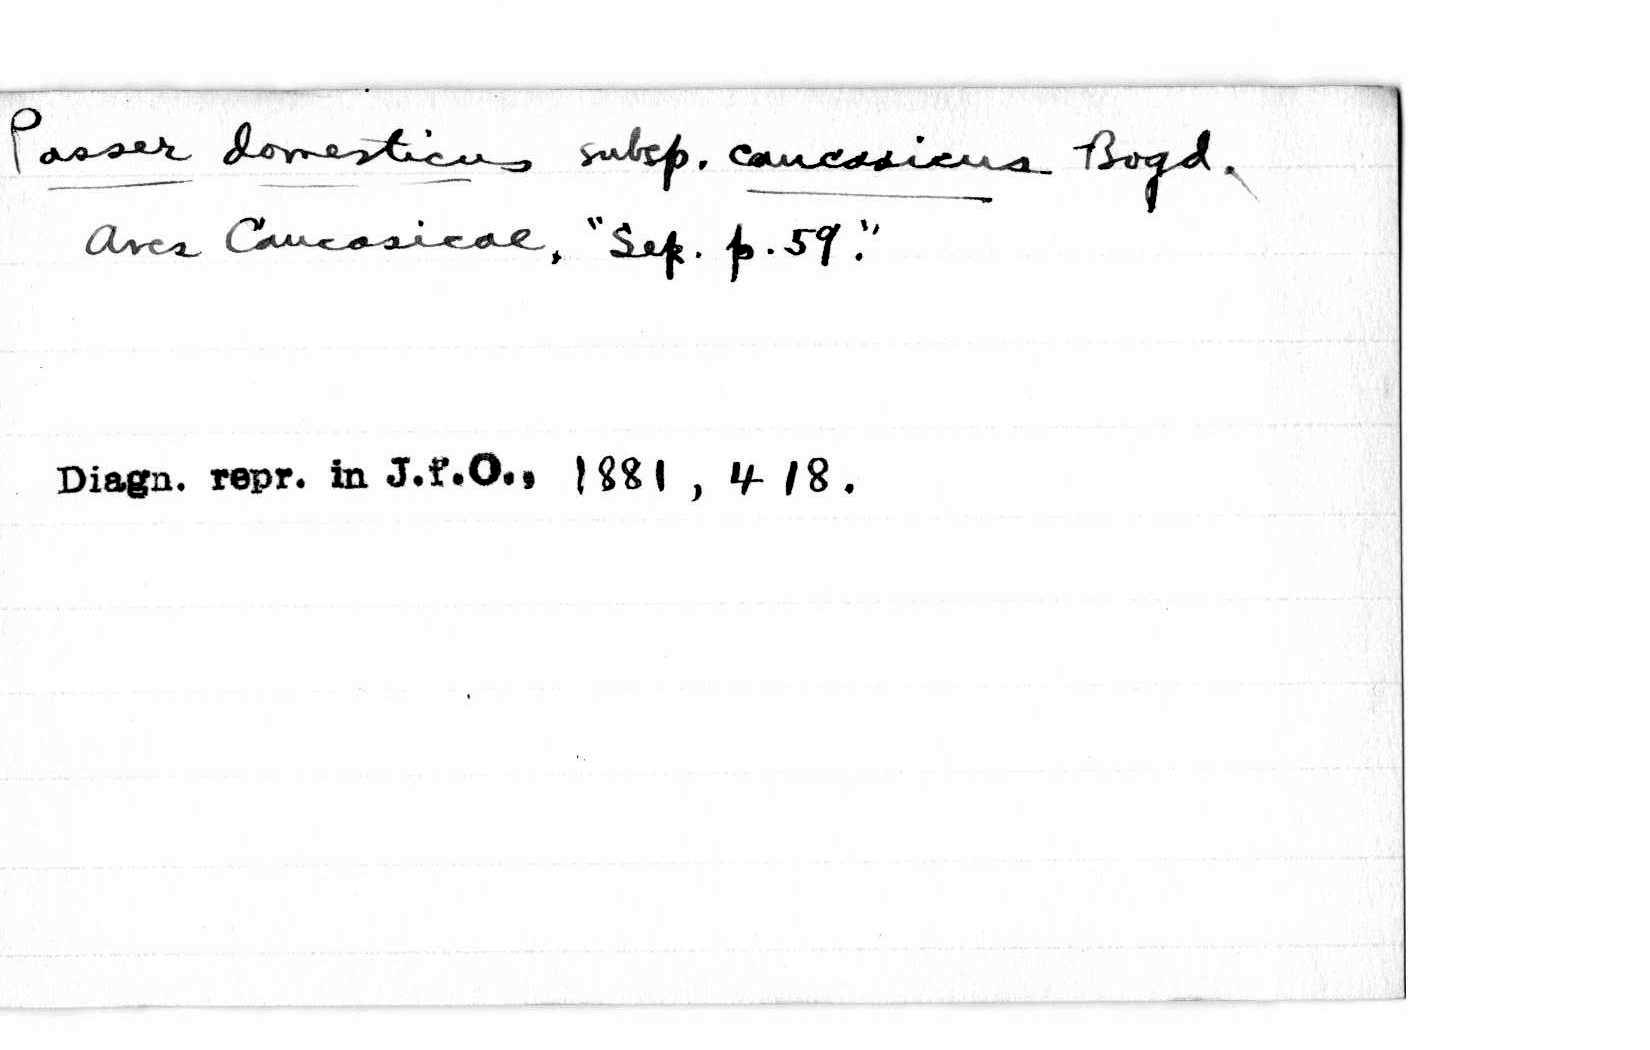 Passer domesticus subsp. caucasicus Bogd.
Aves Caucasicae, "Sep. p. 59."
Diagn. repr. in J.f.O., 1881, 418.